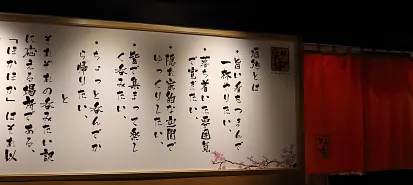 酒独とは
・旨い肴をつまんで
一杯やりたい。
・落ち着いた雰囲気
で寛ぎたい。
・隠れ家的な空間で
ゆっくりしたい。
・皆で集まって楽し
く呑みたい。
・ちょっと呑んでか
ら帰りたい。
と
それぞれの呑みたい記
に応える場所である。
「ほかほか」はそれ以